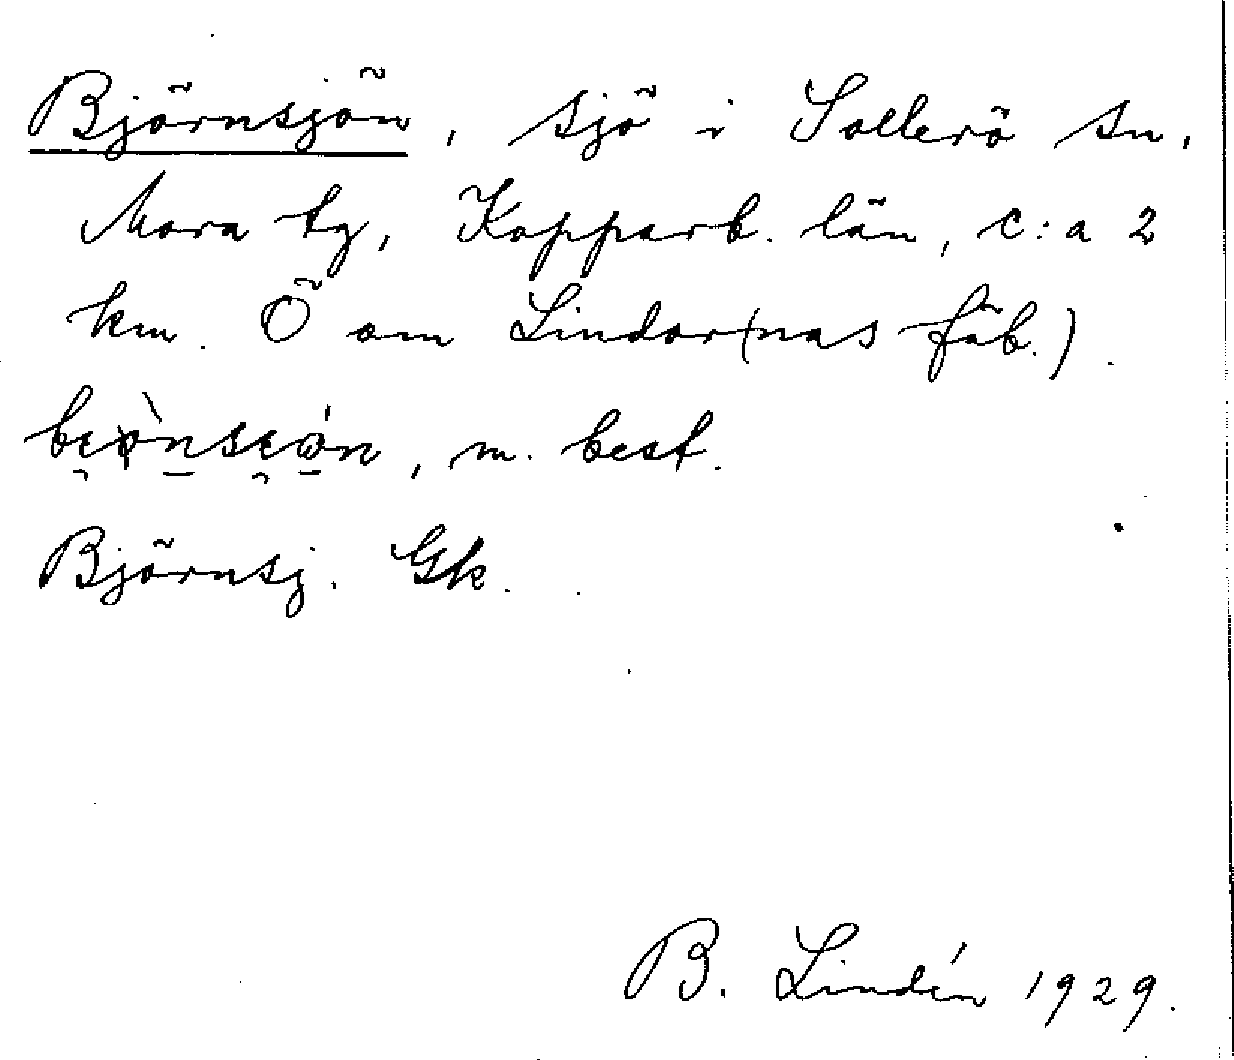 Björnsjön, sjö i Sollerö sn,
Mora tg, Kopparb. län, c:a 2
km. Ö om Lindor(nas fäb.).
m. best.
Björnsj. Gk.
B. Lindén 1929.